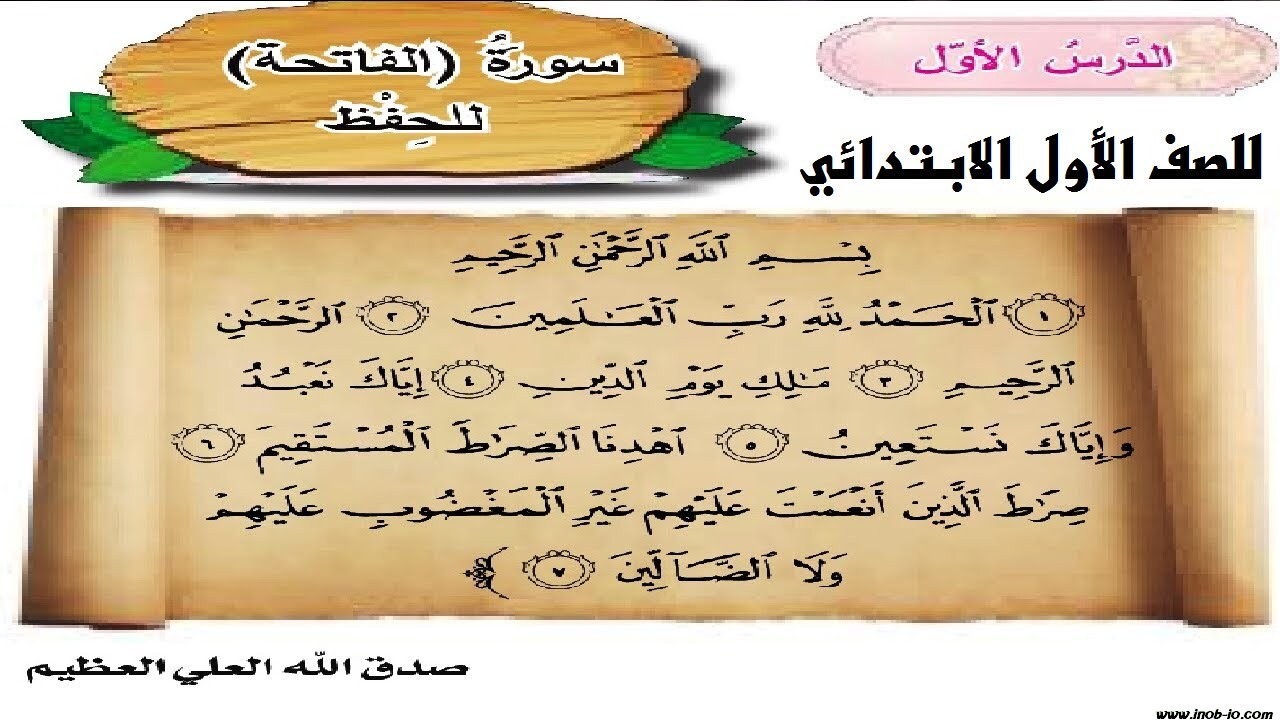 الدَّرسُ الأوّل
سورةُ (الفاتحة)
للحِفْظ
للصف الأول الابتدائي
بِسْمِ ٱللَّهِ ٱلرَّحْمَٰنِ ٱلرَّحِيمِ
١ ٱلْحَمْدُ لِلَّهِ رَبِّ ٱلْعَٰلَمِينَ ٢ ٱلرَّحْمَٰنِ
ٱلرَّحِيمِ ٣ مَٰلِكِ يَوْمِ ٱلدِّينِ ٤ إِيَّاكَ نَعْبُدُ
وَإِيَّاكَ نَسْتَعِينُ ٥ ٱهْدِنَا ٱلصِّرَٰطَ ٱلْمُسْتَقِيمَ ٦
صِرَٰطَ ٱلَّذِينَ أَنْعَمْتَ عَلَيْهِمْ غَيْرِ ٱلْمَغْضُوبِ عَلَيْهِمْ
وَلَا ٱلضَّآلِّينَ ٧
صدق الله العلي العظيم
www.inob-io.com